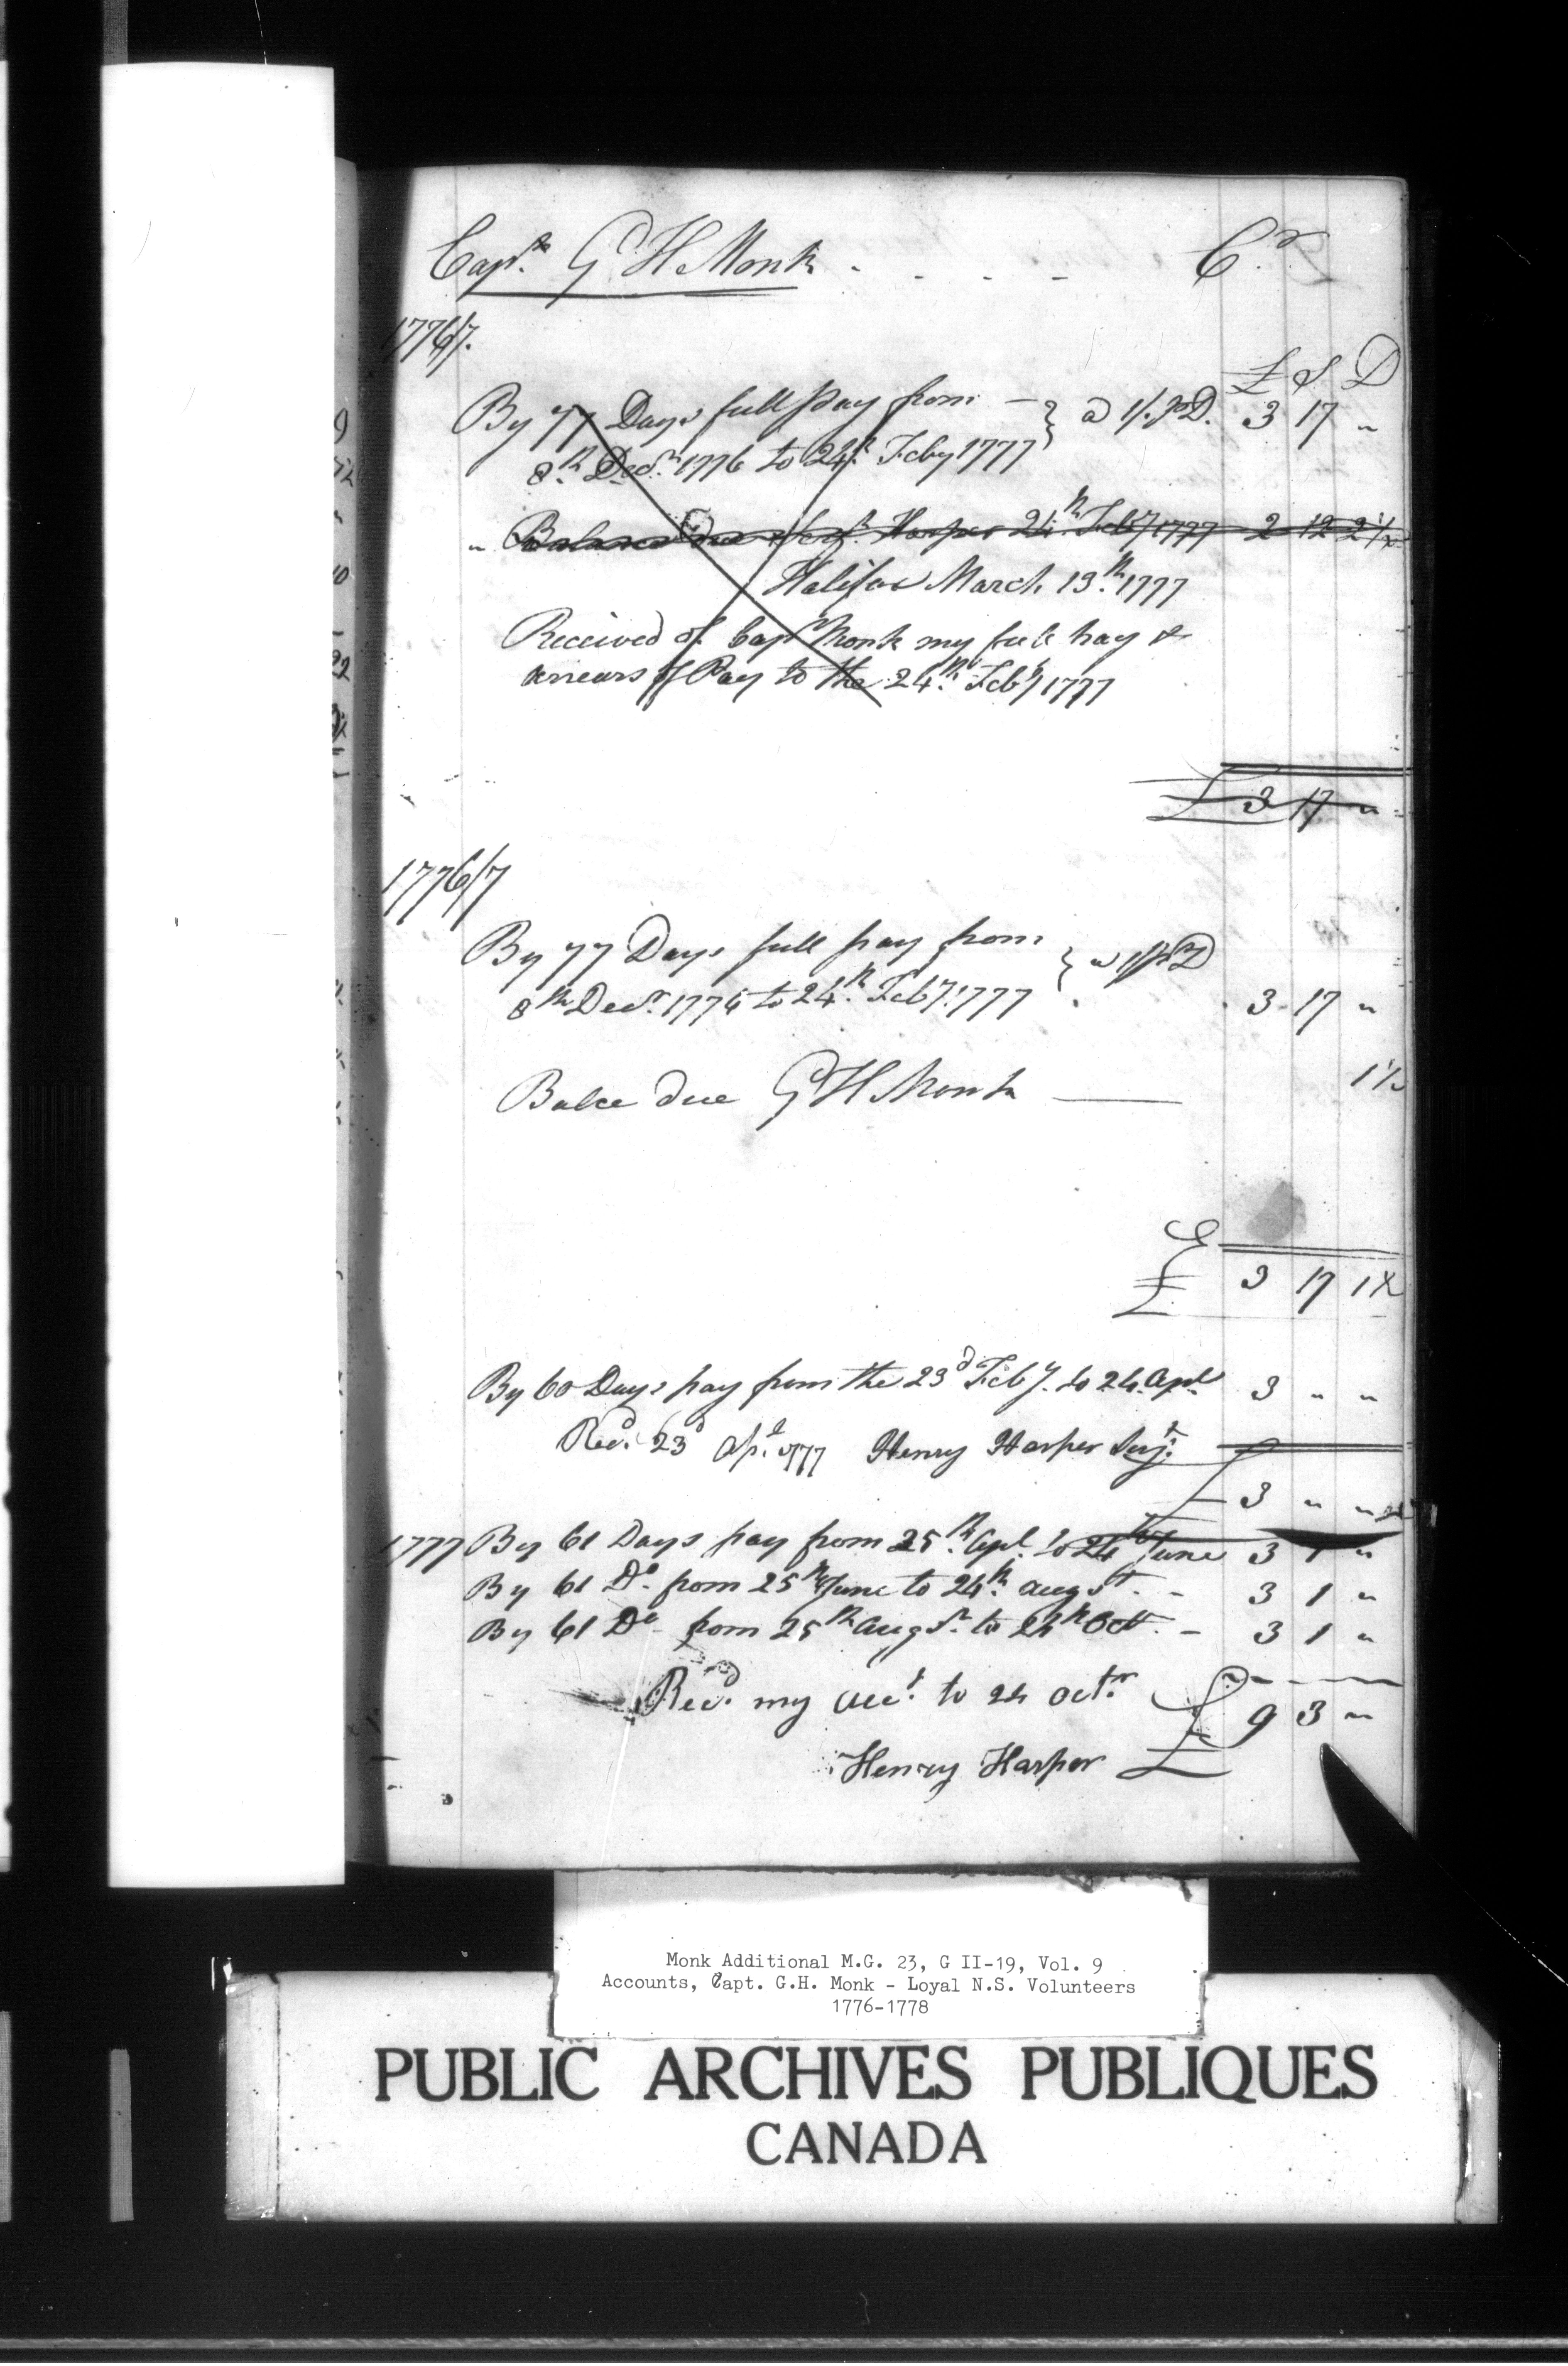 Capt. G H Monk - - - - Cr.
1776/7.
£ S D
By 77 Days full pay from - } a 1/. pr D. 3 17 "
8th. Decr. 1776 to 24th. Feby 1777
" Balance due Serjt. Harper 24th Feby 1777 2 12 2½
Halifax March 13th. 1777
Received of Capt Monk my full pay &
arrears of Pay to the 24th. Feby 1777
£ 3 17 "
1776/7
By 77 Days full pay from } a 1/ pr D
8th Decr. 1776 to 24th. Feby. 1777 3 17 "
Balce due G H Monk 1½
£ 3 17 1½
By 60 Days pay from the 23d Feby. to 24. Apl 3 " "
Recd. 23d Apl. 1777 Henry Harper Serjt.
£ 3 " "
1777 By 61 Days pay from 25th. Apl. to 24th June 3 1 "
By 61 Do. from 25th June to 24th. Augst. - 3 1 "
By 61 Do - from 25th Augst. to 24th Oct. - 3 1 "
Recd. my Acct. to 24 Octr. £ 9 3 "
Henry Harper
Monk Additional M.G. 23, G II-19, Vol. 9
Accounts, Capt. G.H. Monk - Loyal N.S. Volunteers
1776-1778
PUBLIC ARCHIVES PUBLIQUES
CANADA